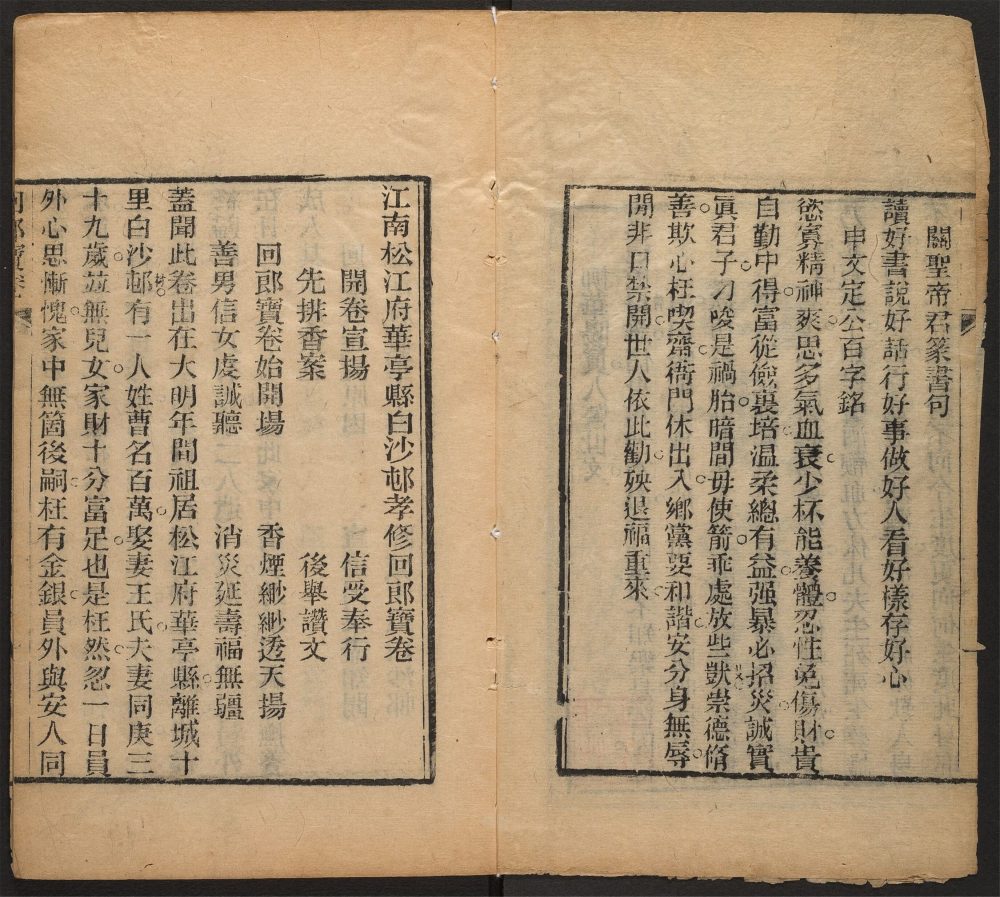 關聖帝君篆書句
讀好書說好話行好事做好人看好樣存好心
申文定公百字銘
慾寡精神爽思多氣血衰少杯能養體忍性免傷財貴
自勤中得富從儉裏培温柔總有益强暴必招災誠實
眞君子刁唆是禍胎暗間毋使箭乖處放些獃崇德脩
善欺心枉喫齋衙門休出入鄉黨要和諧安分身無辱
閒非口禁開世人依此勸殃退福重來
江南松江府華亭縣白沙邨孝修回郎寶卷
開卷宣揚　信受奉行
先排香案　後舉讚文
回郎寶卷始開場　香煙緲緲透天揚
善男信女虔誠聽　消災延壽福無疆
蓋聞此卷出在大明年間祖居松江府華亭縣離城十
里白沙邨有一人姓曹名百萬娶妻王氏夫妻同庚三
十九歲並無兒女家財十分富足也是枉然忽一日員
外心思慚愧家中無箇後嗣枉有金銀員外與安人同
回郎寶卷